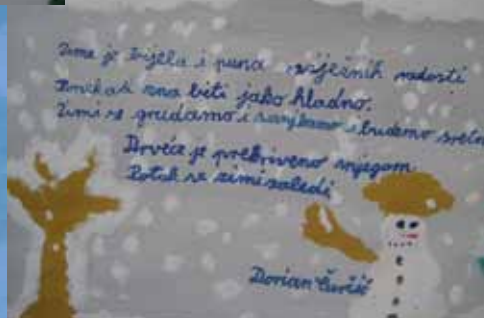 Zima je bijela i puna snježnih radosti
zna biti jako hladno.
Zimi se grudamo i sanjkamo i budemo sretn
Drveće je prekriveno snijegom
Potok se zimi zaledi
Dorian